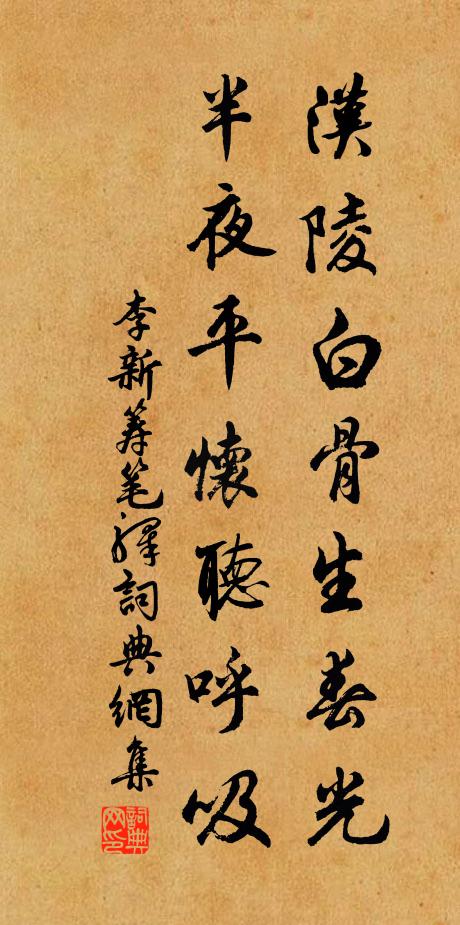 漢陵白骨生春光
半夜平懷聽呼吸
李新籌筆驛詞典網集
詞典网印